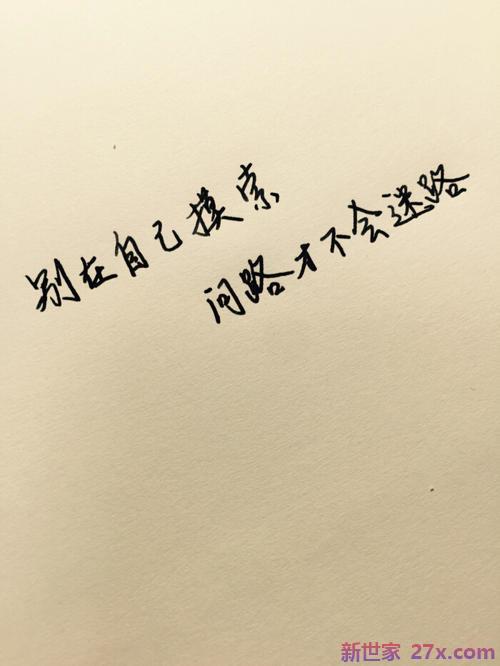 别在自己摸索
问路才不会迷路
新世家 27x.com